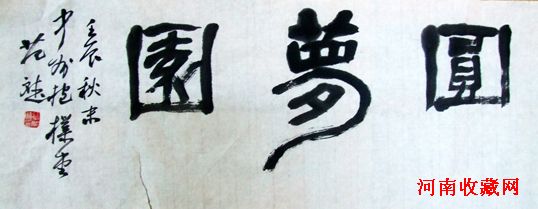 圓夢園
壬辰秋末
中州抱樸堂
范
河南收藏网